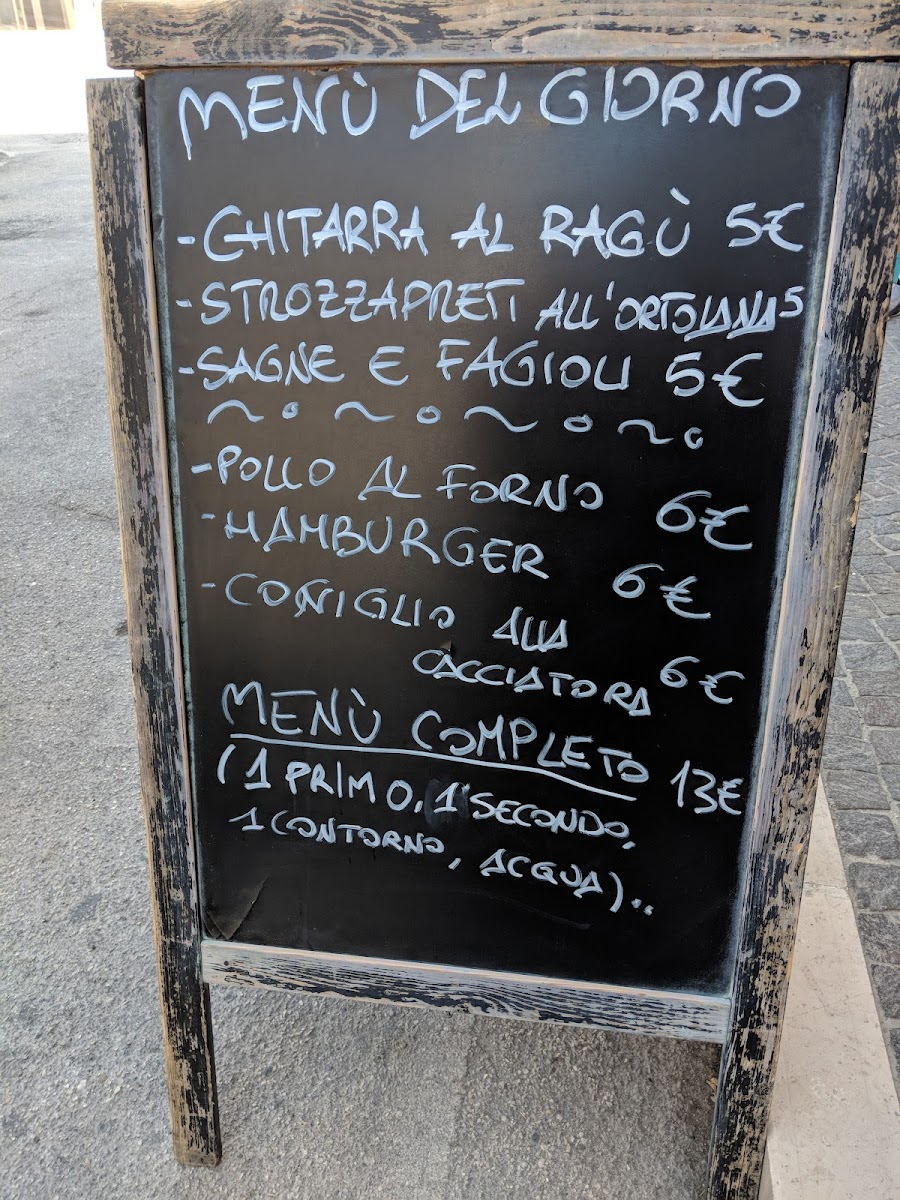 MENÙ DEL GIORNO
- CHITARRA AL RAGÙ 5€
- STROZZAPRETI ALL'ORTOLANA 5
- SAGNE E FAGIOLI 5€
~ ° ~ ° ~ ° ~ °
- POLLO AL FORNO 6€
- HAMBURGER 6€
- CONIGLIO ALLA
CACCIATORA 6€
MENÙ COMPLETO 13€
(1 PRIMO, 1 SECONDO,
1 CONTORNO, ACQUA)..